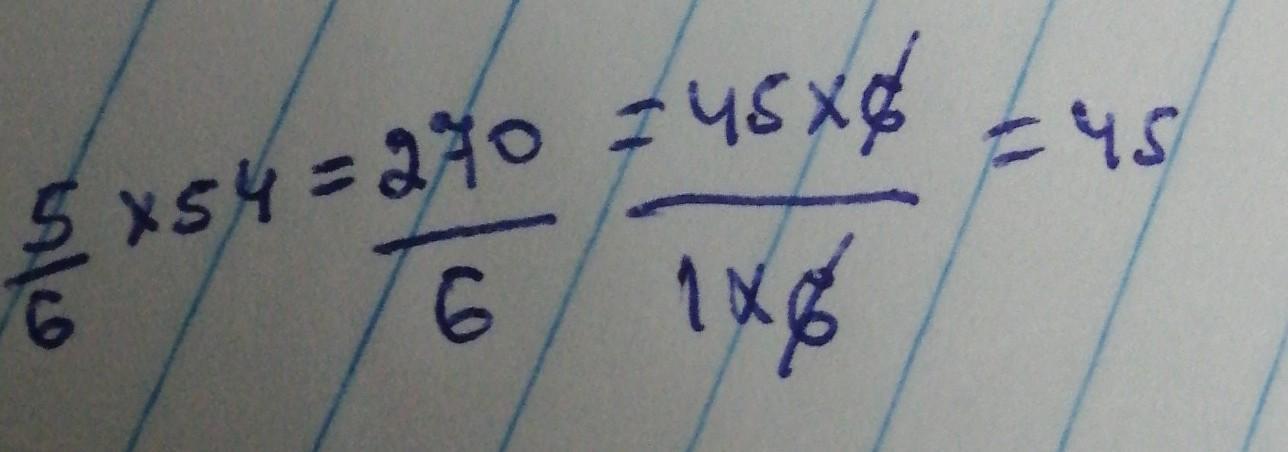 5/6 x 54 = 270/6 = 45 x 6/1 x 6 = 45